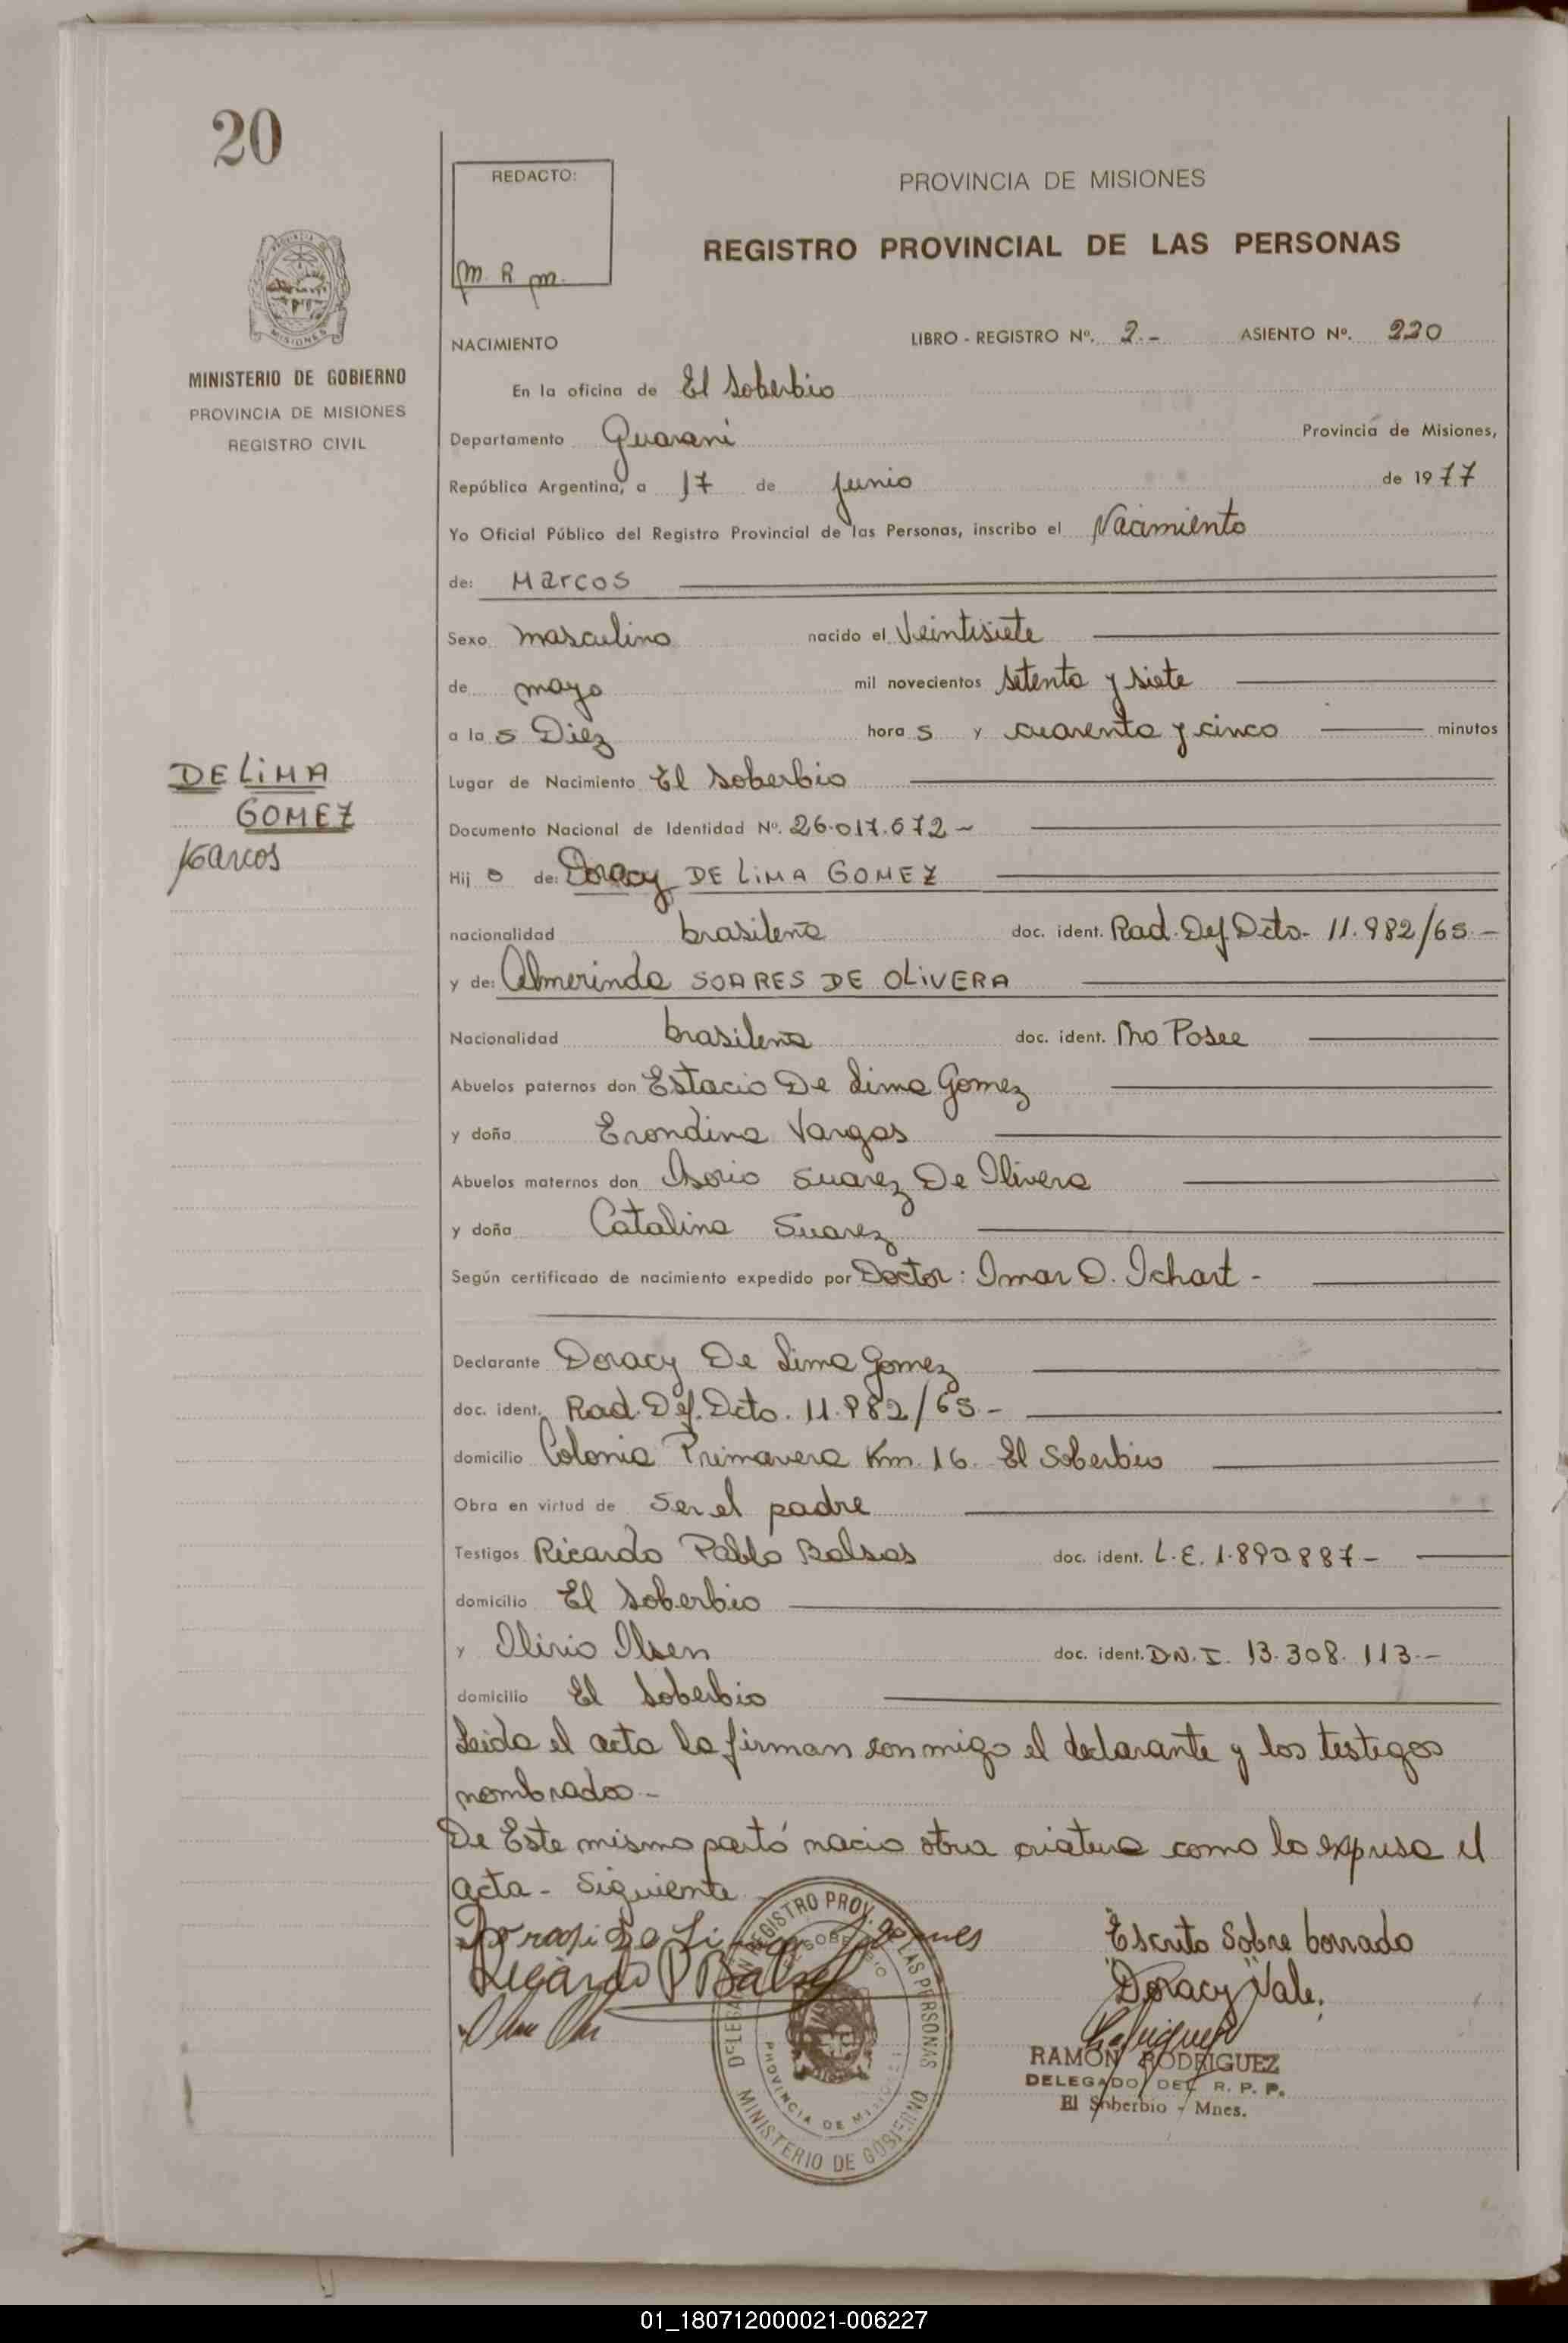 20
REDACTO:
M. R. M.
PROVINCIA DE MISIONES
REGISTRO PROVINCIAL DE LAS PERSONAS
MISIONES
MINISTERIO DE GOBIERNO
PROVINCIA DE MISIONES
REGISTRO CIVIL
NACIMIENTO LIBRO - REGISTRO Nº. 2.- ASIENTO Nº. 220
En la oficina de El Soberbio
Departamento Guarani Provincia de Misiones,
República Argentina, a 17 de Junio de 1977
Yo Oficial Público del Registro Provincial de las Personas, inscribo el Nacimiento
de: Marcos
Sexo masculino nacido el Veintisiete
de mayo mil novecientos setenta y siete
a las Diez horas y cuarenta y cinco minutos
DE LIMA
GOMEZ
Marcos
Lugar de Nacimiento El Soberbio
Documento Nacional de Identidad Nº. 26.017.672 -
Hijo de: Doracy DE LIMA GOMEZ
nacionalidad brasileña doc. ident. Rad. Def. Dcto. 11.982/65.-
y de: Almerinda SOARES DE OLIVERA
Nacionalidad brasilena doc. ident. No Posee
Abuelos paternos don Estacio De Lima Gomez
y doña Erondina Vargas
Abuelos maternos don Osorio Suarez De Olivera
y doña Catalina Suarez
Según certificado de nacimiento expedido por Doctor: Omar O. Ichart -
Declarante Doracy De Lima Gomez
doc. ident. Rad. Def. Dcto. 11.982/65.-
domicilio Colonia Primavera Km. 16. El Soberbio
Obra en virtud de Ser el padre
Testigos Ricardo Pablo Balsas doc. ident. L.E. 1.890887-
domicilio El Soberbio
y Olirio Olsen doc. ident. D.N.I. 13.308.113.-
domicilio El Soberbio
Leida el acta la firman conmigo el declarante y los testigos
nombrados.-
De Este mismo partó nacio otra criatura como lo expresa el
acta - Siguiente
Ricardo P Balsas
Escrito Sobre borrado
"Doracy" Vale.
RAMON RODRIGUEZ
DELEGADO DEL R. P. P.
El Soberbio - Mnes.
DELEGACION REGISTRO PROV. DE LAS PERSONAS
EL SOBERBIO
PROVINCIA DE MISIONES
MINISTERIO DE GOBIERNO
01_180712000021-006227